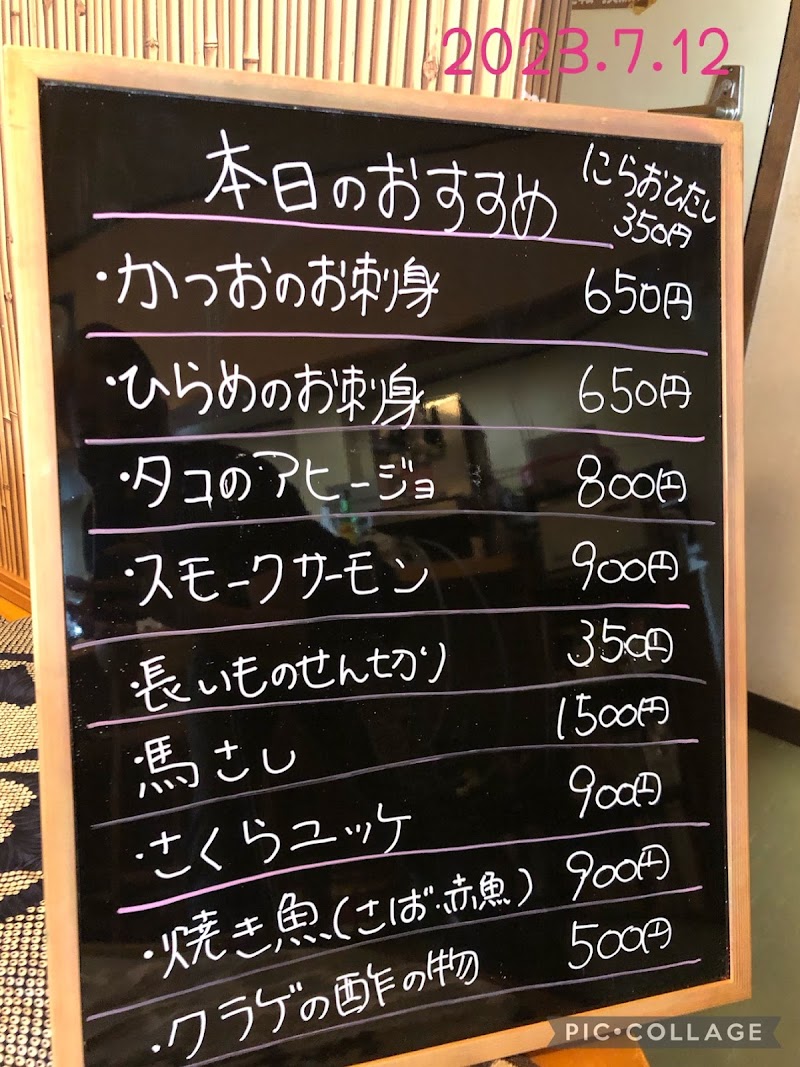 2023.7.12
本日のおすすめ
にらおひたし
350円
・かつおのお刺身 650円
・ひらめのお刺身 650円
・タコのアヒージョ 800円
・スモークサーモン 900円
・長いものせん切り 350円
・馬さし 1500円
・さくらユッケ 900円
・焼き魚(さば・赤魚) 900円
・クラゲの酢の物 500円
PIC•COLLAGE